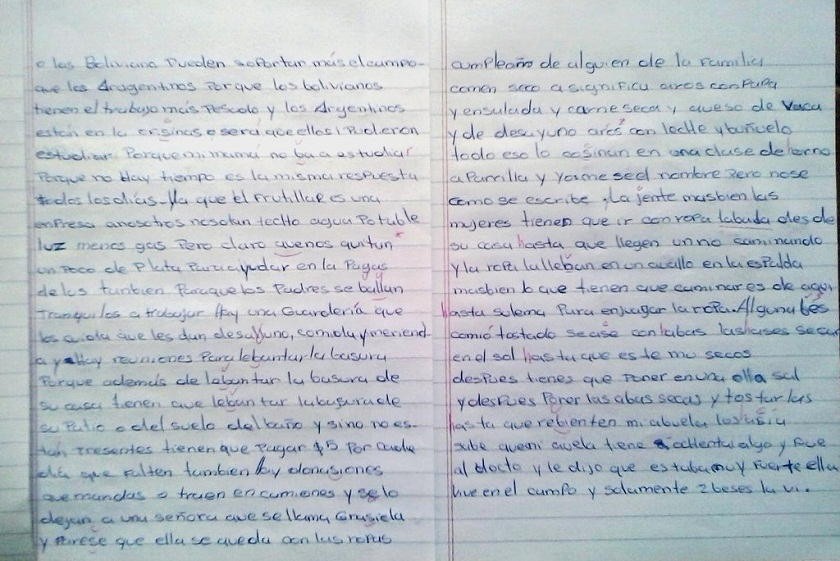 o las Boliviano Pueden soportar más el campo-
que los Arugentinos Porque los bolivianos
tienen el trabajo más Pesado y los Argentinos
están en la ersinas o será que ellos i Pudieron
estudiar Porque mi mamá no ba a estudiar
Porque no Hay tiempo es la misma respuesta
todos los días. Ya que el Frutillar es una
enPresa a nosotros nos dan techo agua Potable
luz menos gas Pero claro que nos quitan
un Poco de Plata Para ayudar en la Pagas
de los tanbien Para que los Padres se ballan
Tranquilos a trabajar Hay una Guardería que
les que les dan desalluno, comida y meriend
a y Hay reuniones Para lebantar la basura
Porque además de lebantar la basura de
su casa tienen que lebantar la basura de
su Patio o del suelo del baño y si no es-
tán Presentes tienen que Pagar $5 Por cada
día que falten tambien Hay donasiones
que mandas o traen en camiones y se lo
dejan a una señora que se llama Grasiela
y Parese que ella se queda con las ropas
cumpleaño de alguien de la Familia
comen seco a significa aros con Papa
y ensalada y carne seca y queso de vaca
y de desayuno aros con leche y buñuelo
todo eso lo cosinan en una clase de horno
a Parrilla y yo me se el nombre Pero no se
como se escribe, la jente mas bien las
mujeres tienen que ir con ropa labada desde
su casa hasta que llegen un rio caminando
y la ropa la lleban en un aguallo en la esPalda
mas bien lo que tienen que caminar es de aqui
hasta sulema Para enjuagar la ropa. Alguna bes
comió tostado se ase con abas las ases secar
en el sol hasta que este mu secos
despues tienes que Poner en una olla sal
y despues Poner las abas secas y tostarlas
hasta que rebienten mi abuela los
sabe que mi avela tiene algo y fue
al docto y le dijo que estaba muy fuerte ella
vive en el campo y solamente 2 beses la vi.